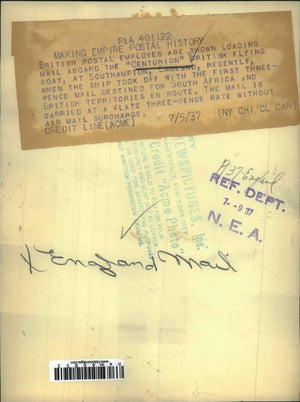 PLA 401122
MAKING EMPIRE POSTAL HISTORY
BRITISH POSTAL EMPLOYES ARE SHOWN LOADING
MAIL ABOARD THE "CENTURION" BRITISH FLYING
BOAT, AT SOUTHAMPTON, ENGLAND, RECENTLY,
WHEN THE SHIP TOOK OFF WITH THE FIRST THREE-
PENCE MAIL DESTINED FOR SOUTH AFRICA AND
BRITISH TERRITORIES EN ROUTE. THE MAIL IS
CARRIED AT A FLAT THREE-PENCE RATE WITHOUT
AIR MAIL SURCHARGE.
CREDIT LINE (ACME) 7/5/37 (NY CHI CL CAN)
NEWSPICTURES, Inc.
Credit "Acme Photo"
England
REF. DEPT.
7-9-37
N. E. A.
X England Mail